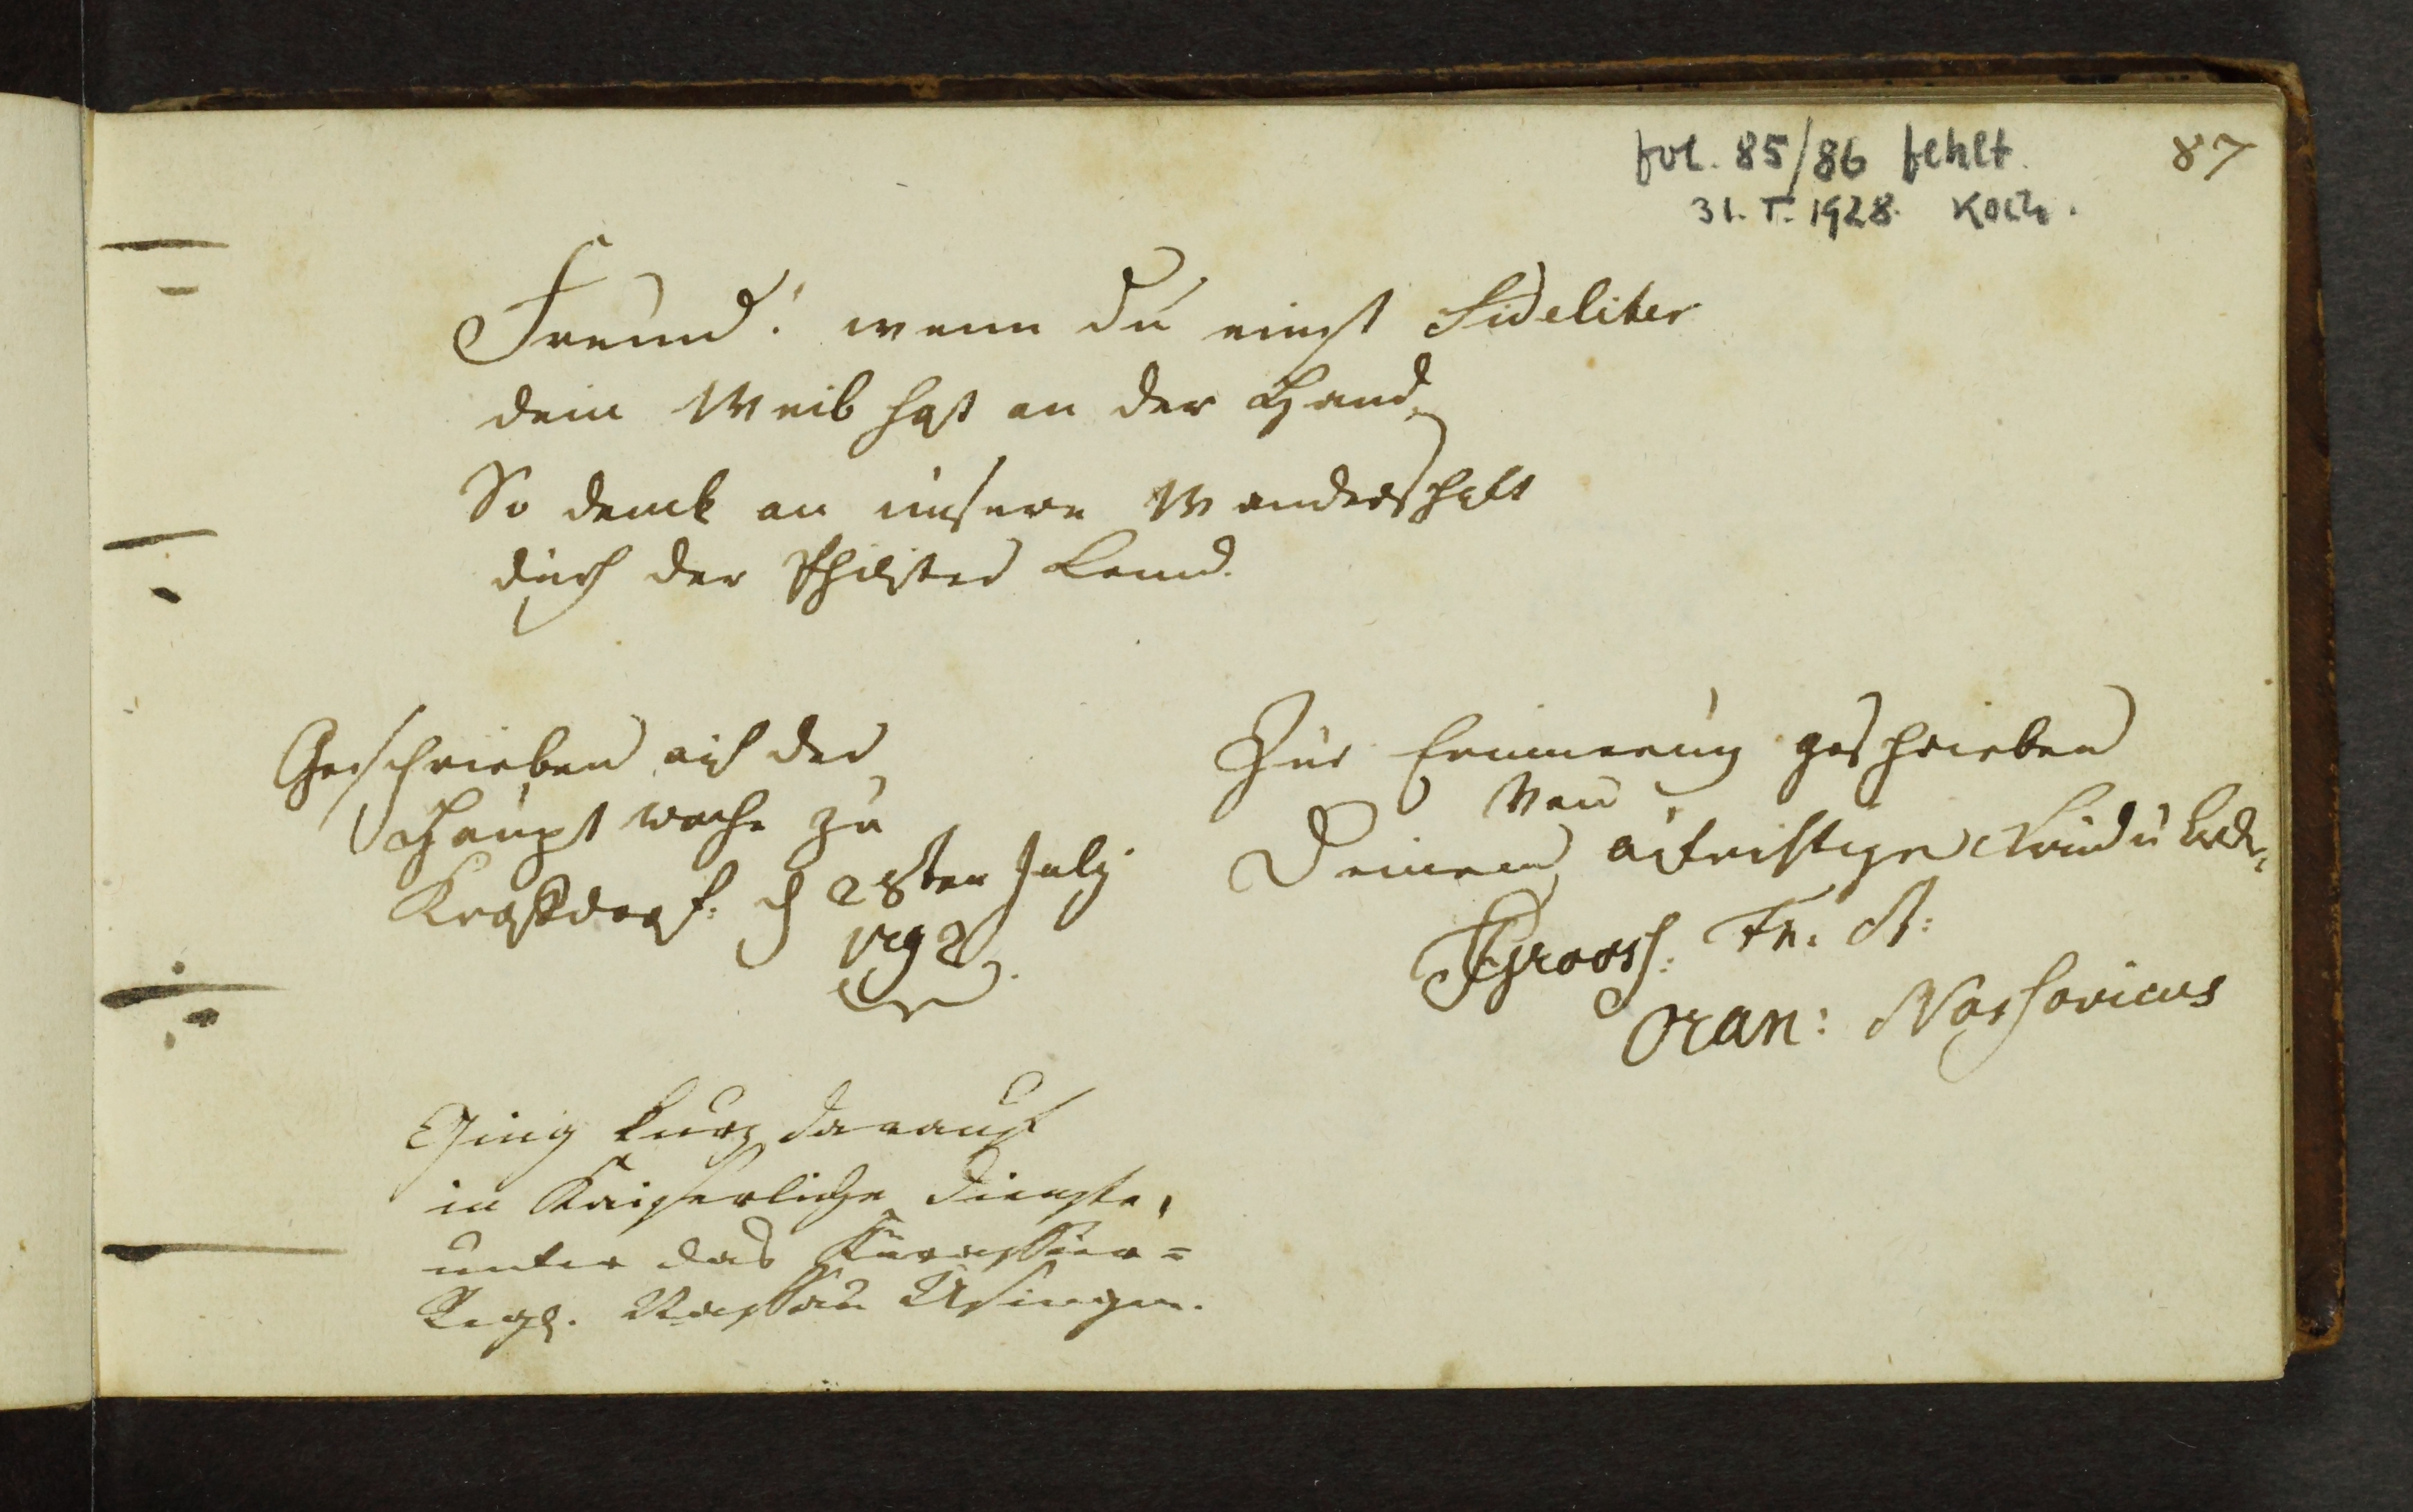 fol. 85/86 fehlt.
31. I. 1928. Koch.
87
Freund! wenn du einst Fideliter
dein Weib hast an der Hand,
So denck an unsere Wanderschaft
durch der Philister Land.
Geschrieben auf der
Haupt wache zu
d 28ten July
1792.
Zur Erinnerung geschrieben
von
Deinem aufrichtigen Freund u
Groos
Oran: Nassovicus
Ging kurz darauf
in Kaiserliche Dienste,
unter das Kürassier=
Regt. Nassau Usingen.